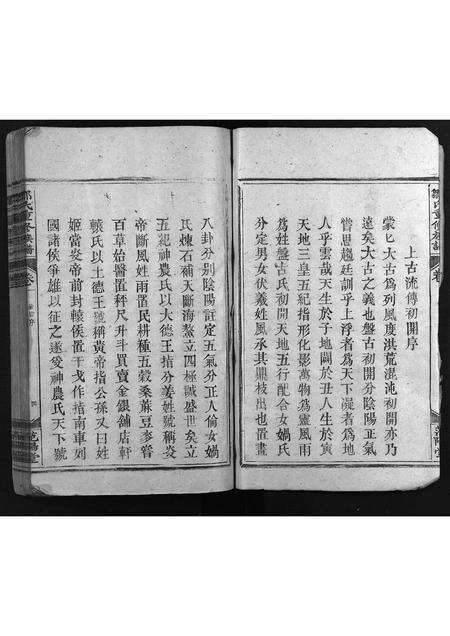 上古流傳初開序
蒙匕大古為列風度洪荒混沌初開亦乃
遠矣大古之義也盤古初開分陰陽正氣
嘗思趨廷訓乎上浮者為天下凝者為地
人乎云哉天生於子地闢於丑人生於寅
天地三皇五紀指形化影萬物為靈風雨
為姓盤古氏初開天地五行配合女媧氏
分定男女伏羲姓風承其鼎枝出也置畫
八卦分別陰陽註定五氣分正人倫女媧
氏煉石補天斷海鰲立四極誠盛世矣立
五祀神農氏以大德王指分姜姓號稱炎
帝斷風姓雨置民耕種五穀桑蔴豆麥嘗
百草始醫置秤尺升斗買賣金銀舖店軒
轅氏以土德王號稱黃帝指公孫又曰姓
姬當炎帝前封轅侯置干戈作指南車列
國諸侯爭雄以征之遂爰神農氏天下號
鄒氏重修族譜
范陽堂